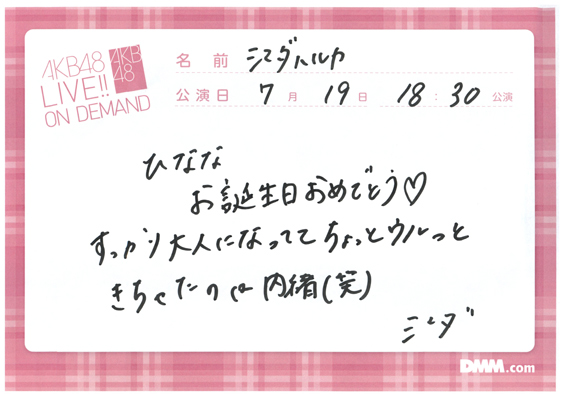 AKB48
LIVE!!
ON DEMAND
AKB
48
名前 シマダハルカ
公演日 7月19日 18:30公演
ひなな
お誕生日おめでとう♡
すっかり大人になっててちょっとウルっと
きちゃたのは内緒(笑)
シマダ
DMM.com